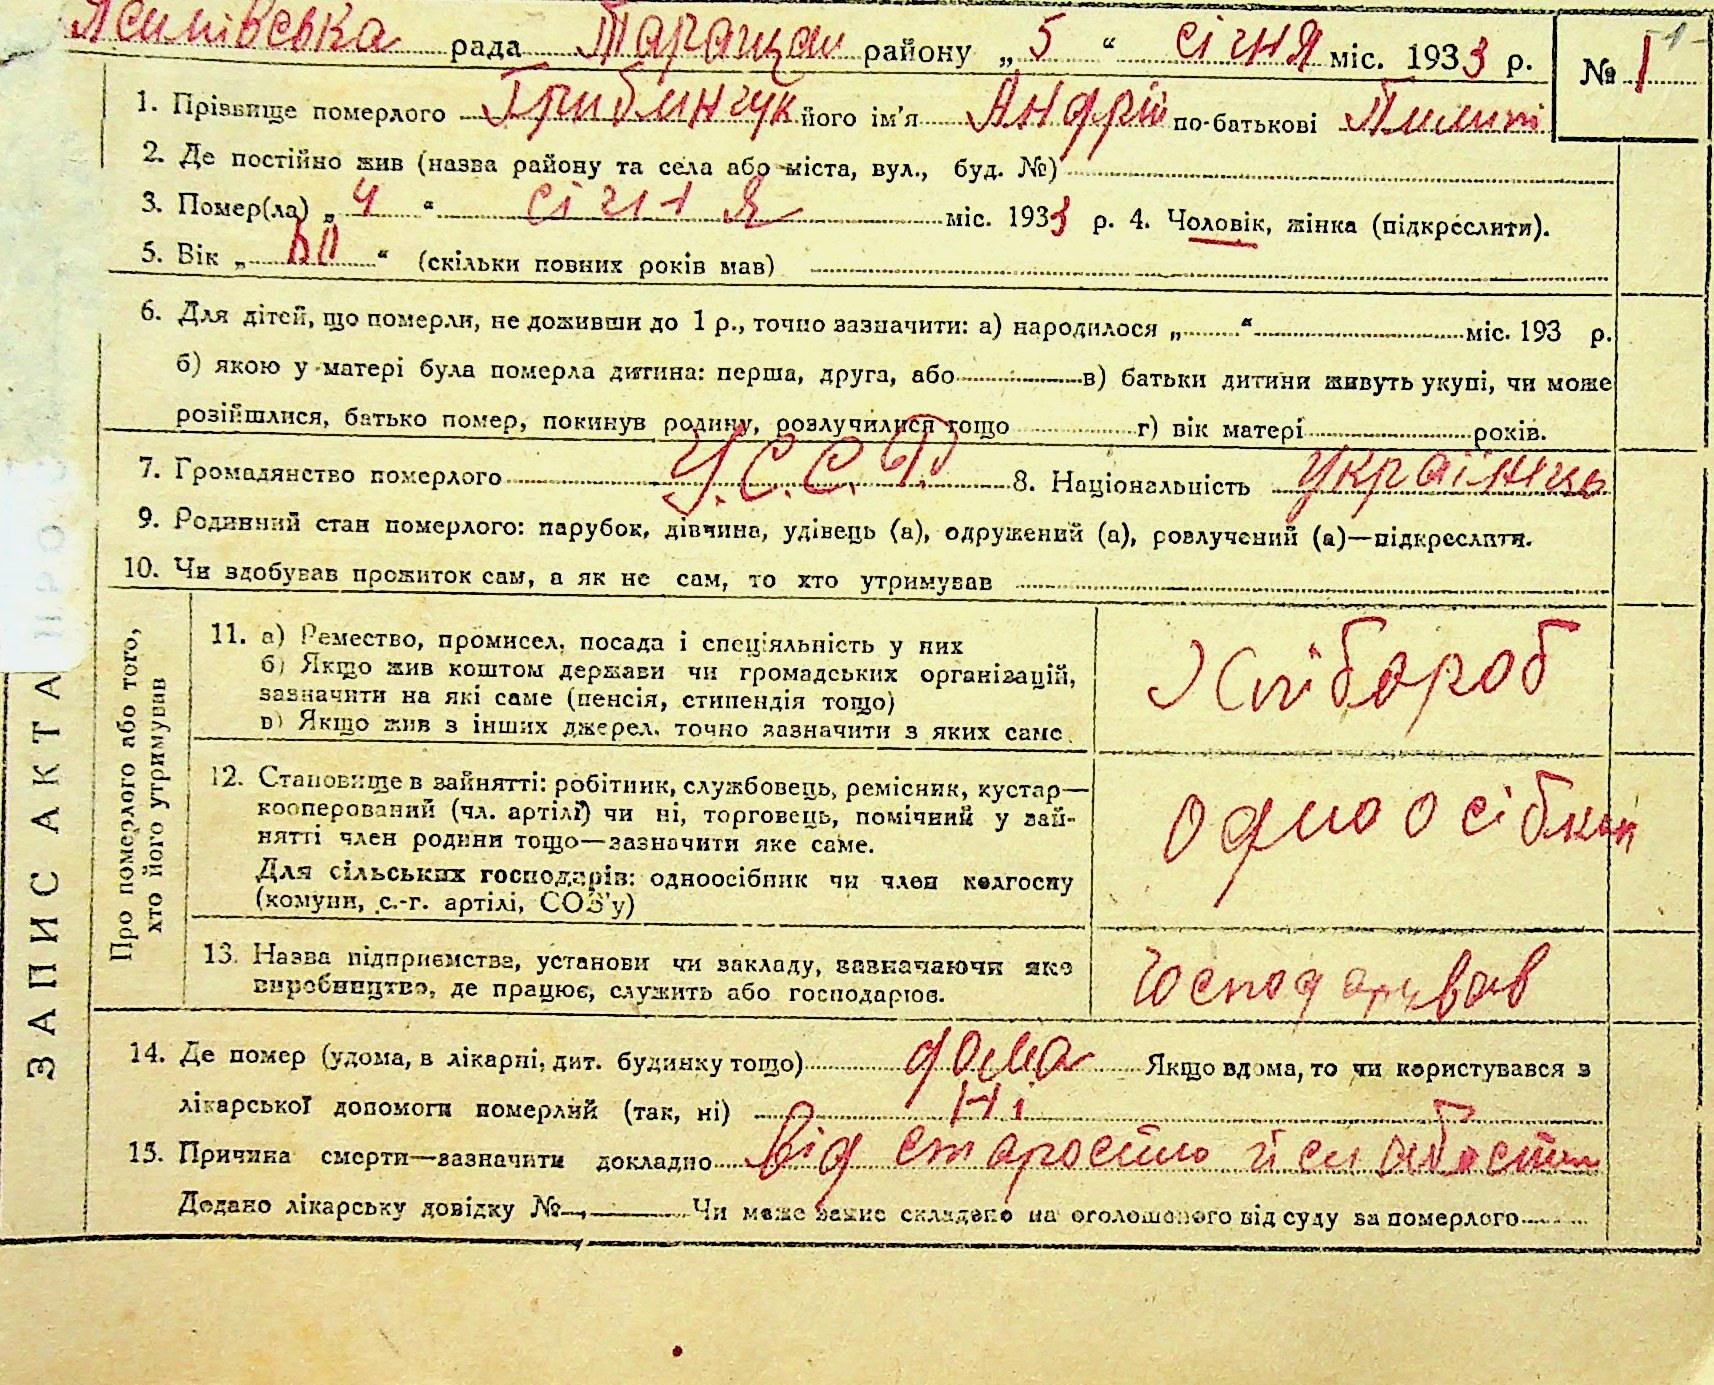 рада Таращан району „ 5 “ січня міс. 1933 р. № 1
1. Прізвище померлого його ім'я Андрій по-батькові
2. Де постійно жив (назва району та села або міста, вул., буд. №)
3. Помер(ла) „ 4 “ січня міс. 1933 р. 4. Чоловік, жінка (підкреслити).
5. Вік „ “ (скільки повних років мав)
6. Для дітей, що померли, не доживши до 1 р., точно зазначити: а) народилося „ “ міс. 193 р.
б) якою у матері була померла дитина: перша, друга, або в) батьки дитини живуть укупі, чи може
розійшлися, батько помер, покинув родину, розлучилися тощо г) вік матері років.
7. Громадянство померлого У.С.С.Р. 8. Національність українець
9. Родинний стан померлого: парубок, дівчина, удівець (а), одружений (а), розлучений (а)—підкреслити.
10. Чи здобував прожиток сам, а як не сам, то хто утримував
ЗАПИС АКТА ПРО
Про померлого або того,
хто його утримував
11. а) Ремество, промисел, посада і спеціяльність у них
б) Якщо жив коштом держави чи громадських організацій,
зазначити на які саме (пенсія, стипендія тощо)
в) Якщо жив з інших джерел, точно зазначити з яких саме
Хлібороб
12. Становище в зайнятті: робітник, службовець, ремісник, кустар—
кооперований (чл. артілі) чи ні, торговець, помічний у зай-
нятті член родини тощо—зазначити яке саме.
Для сільських господарів: одноосібник чи член колгоспу
(комуни, с.-г. артілі, СОЗ'у)
одноосібник
13. Назва підприємства, установи чи закладу, зазначаючи яке
виробництво, де працює, служить або господарює.
господарував
14. Де помер (удома, в лікарні, дит. будинку тощо) дома Якщо вдома, то чи користувався з
лікарської допомоги померлий (так, ні) Ні
15. Причина смерти—зазначити докладно від старости й слабости
Додано лікарську довідку № Чи може запис складено на оголошеного від суду за померлого